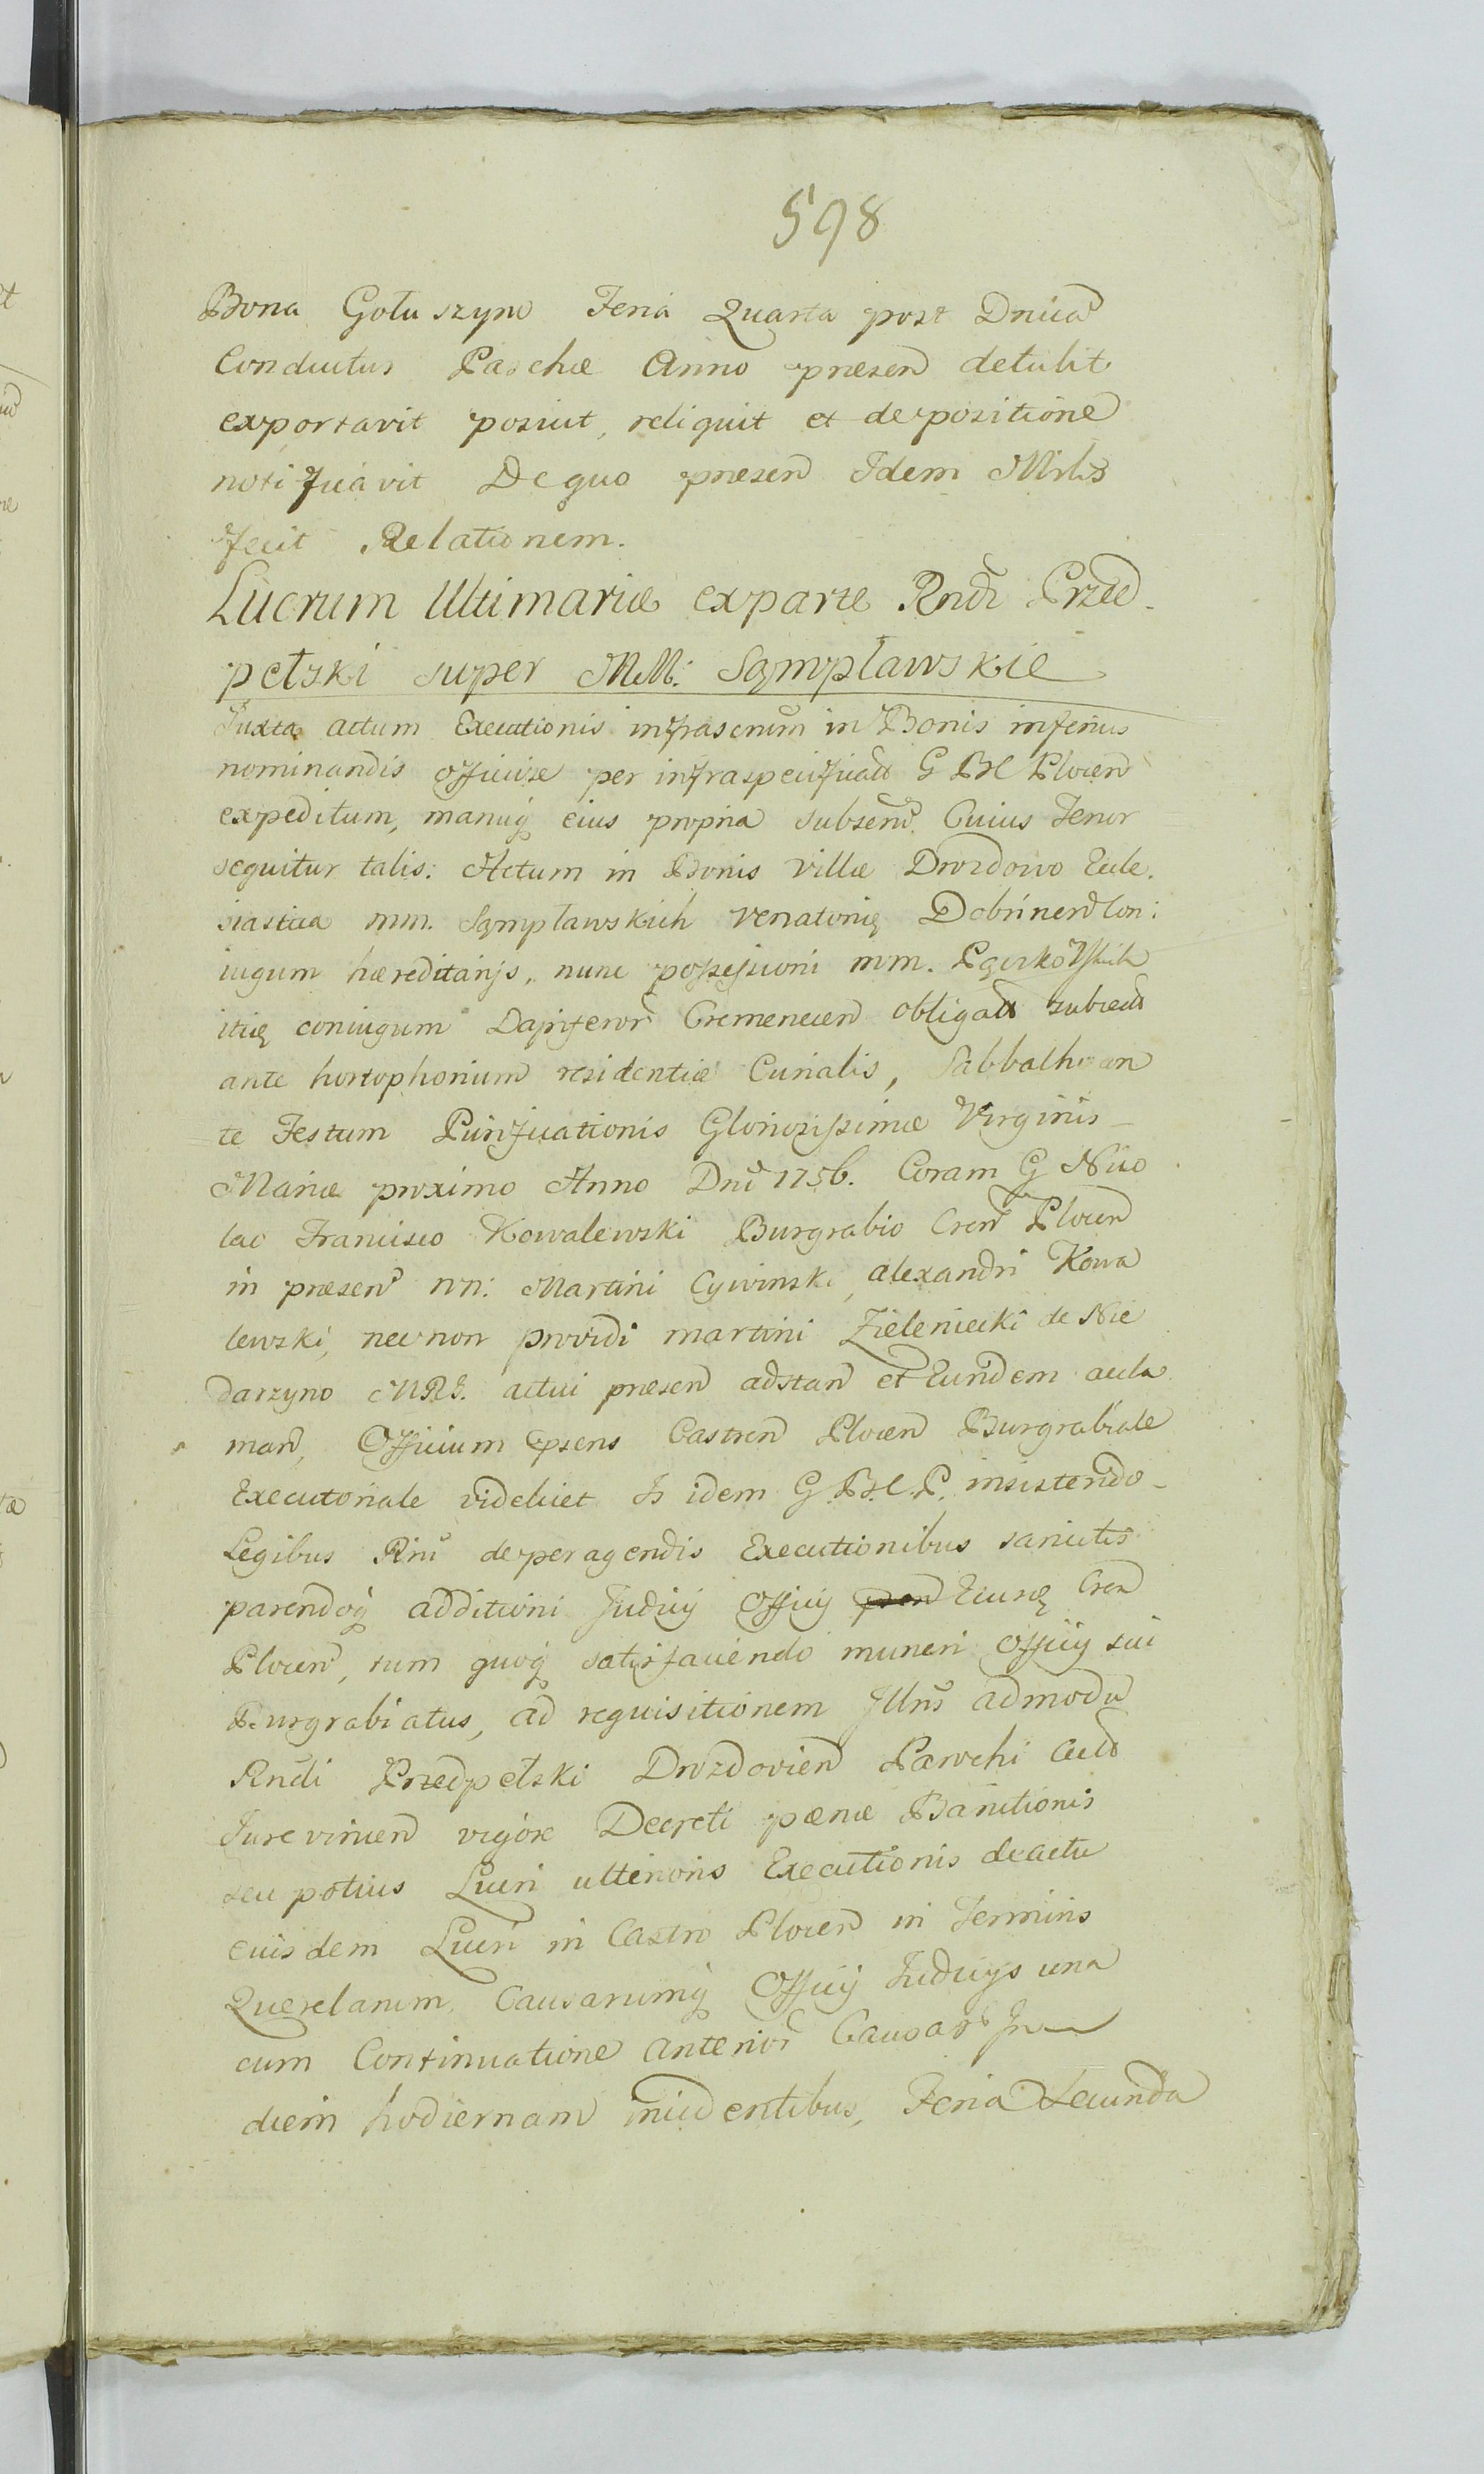 598
Bona Gołuszyno Feria Quarta post Dnicā
Conductus Paschæ Anno præsen detulit
exportavit posuit, reliquit et depositione
notificavit De quo præsen Idem Mirlis
fecit Relationem.
Lucrum Ultimariæ ex parte Rndi Przed
pełski super MM: Sąmpławskie
Juxta actum Executionis infrascrum in Bonis inferius
nominandis officiose per infraspecificatū G B C Plocen
expeditum, manuq eius propria subscrū Cuius Tenor
sequitur talis: Actum in Bonis Villæ Drozdowo Eccle.
siastica mm. Sąmpławskich Venatorię Dobrinen Con:
iugum hæreditarijs, nunc possessioni mm.
itię coniugum Dapiferor Cremenecen obligatt subiectt
ante hortophorium residentiæ Curialis, Sabbatho an
te Festum Purificationis Gloriosissimæ Virginis
Mariæ proximo Anno Dni 1756. Coram G Nico
lao Francisco Kowalewski Burgrabio Cren Plocen
in præsen nn: Martini Cywinski, Alexandri Kowa
lewski, nec non providi martini Zieleniecki de Nie
darzyno MRG. actui præsen adstan et Eundem accla
man, Officium præsens Castren Plocen Burgrabiale
Executoriale videlicet Is idem G.B.C.P. insistendo
Legibus Rni de peragendis Executionibus sancitis
parendoq additioni Judicij Officij Eiusdę Cren
Plocen, tum quoq satisfaciendo muneri Officij sui
Burgrabiatus, ad requisitionem Illris admodū
Rndi Przedpełski Drozdovien Parochi
Jure vincen vigore Decreti pænæ Banitionis
seu potius Lucri ulterioris Executionis de actu
eiusdem Lucri in Castro Plocen in Terminis
Querelarum, Causarumq Officij Judicijs una
cum Continuatione anterior Causar In
diem hodiernam incidentibus, Feria Secunda